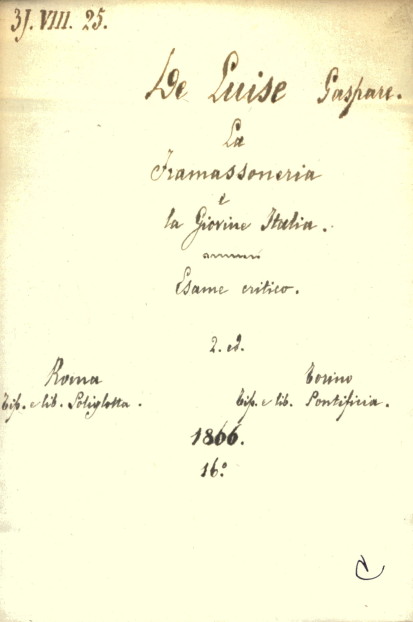 3J. VIII. 25.
De Luise Gaspare.
La
Framassoneria
e
la Giovine Italia.
Esame critico.
2. ed.
Roma
Tip. e lib. Poliglotta.
Torino
Tip. e lib. Pontificia.
1866.
16°